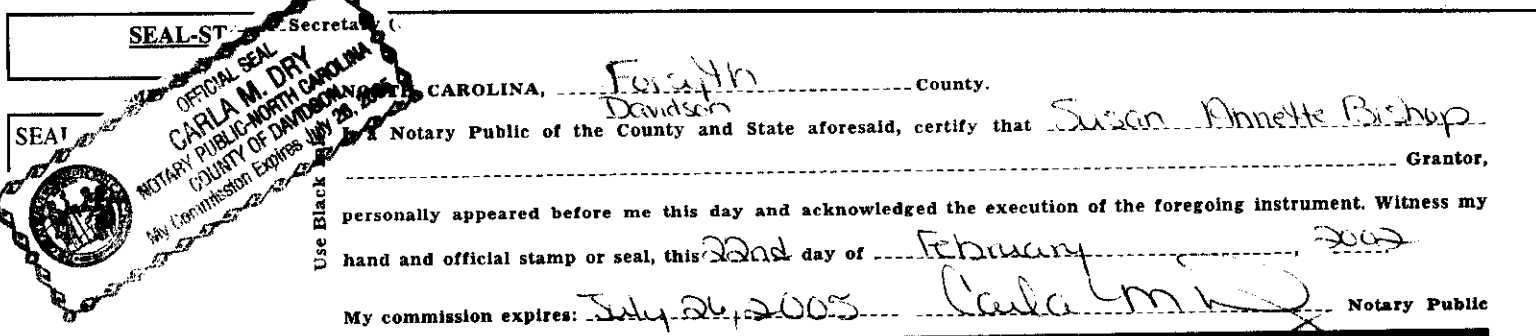 SEAL-ST
Secreta
SEAL
OFFICIAL SEAL
CARLA M. DRY
NOTARY PUBLIC-NORTH CAROLINA
COUNTY OF DAVIDSON
My Commission Expires July 26, 2005
Use Black
CAROLINA, Forsyth County.
Davidson
a Notary Public of the County and State aforesaid, certify that Susan Annette Bishop
Grantor,
personally appeared before me this day and acknowledged the execution of the foregoing instrument. Witness my
hand and official stamp or seal, this 22nd day of February, 2002
My commission expires: July 26, 2005 Carla M Notary Public